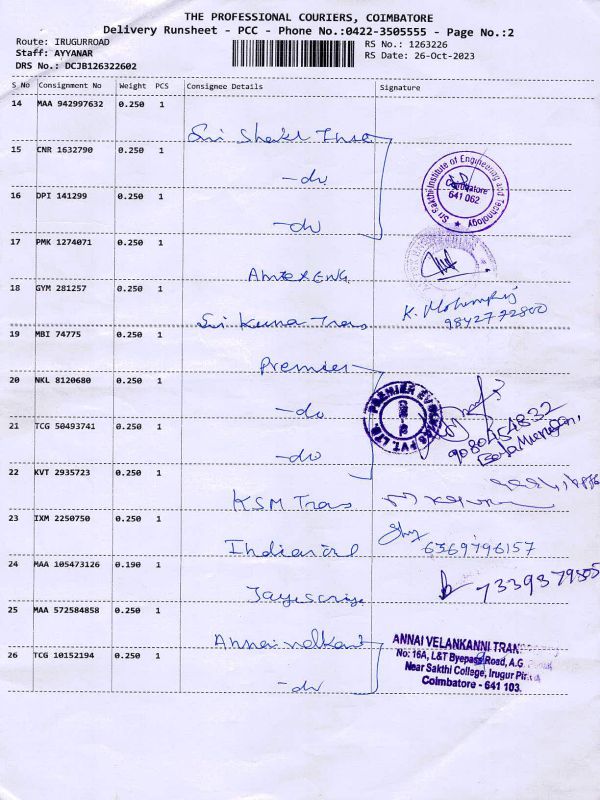 THE PROFESSIONAL COURIERS, COIMBATORE
Delivery Runsheet - PCC - Phone No.:0422-3505555 - Page No.:2
Route: IRUGURROAD
RS No.: 1263226
Staff: AYYANAR
RS Date: 26-Oct-2023
DRS No.: DCJB126322602
S No Consignment No Weight PCS Consignee Details Signature
14 MAA 942997632 0.250 1
Sri Shakti
15 CNR 1632790 0.250 1
-do
Sri Sakthi Institute of Engineering and Technology
Coimbatore
641 062
16 DPI 141299 0.250 1
-do
17 PMK 1274071 0.250 1
18 GYM 281257 0.250 1
K.
9842772800
Sri Kuma Trans
19 MBI 74775 0.250 1
Premier
20 NKL 8120680 0.250 1
-do
PREMIER EVOLVICS PVT. LTD.
9080454832
Bala Murugan,
21 TCG 50493741 0.250 1
-do
22 KVT 2935723 0.250 1
KSM Trans
23 IXM 2250750 0.250 1
6369796157
24 MAA 105473126 0.190 1
7339379805
25 MAA 572584858 0.250 1
Annai
26 TCG 10152194 0.250 1
-do
ANNAI VELANKANNI
No: 16A, L&T Byepass Road, A.G.
Near Sakthi College, Irugur
Coimbatore - 641 103.